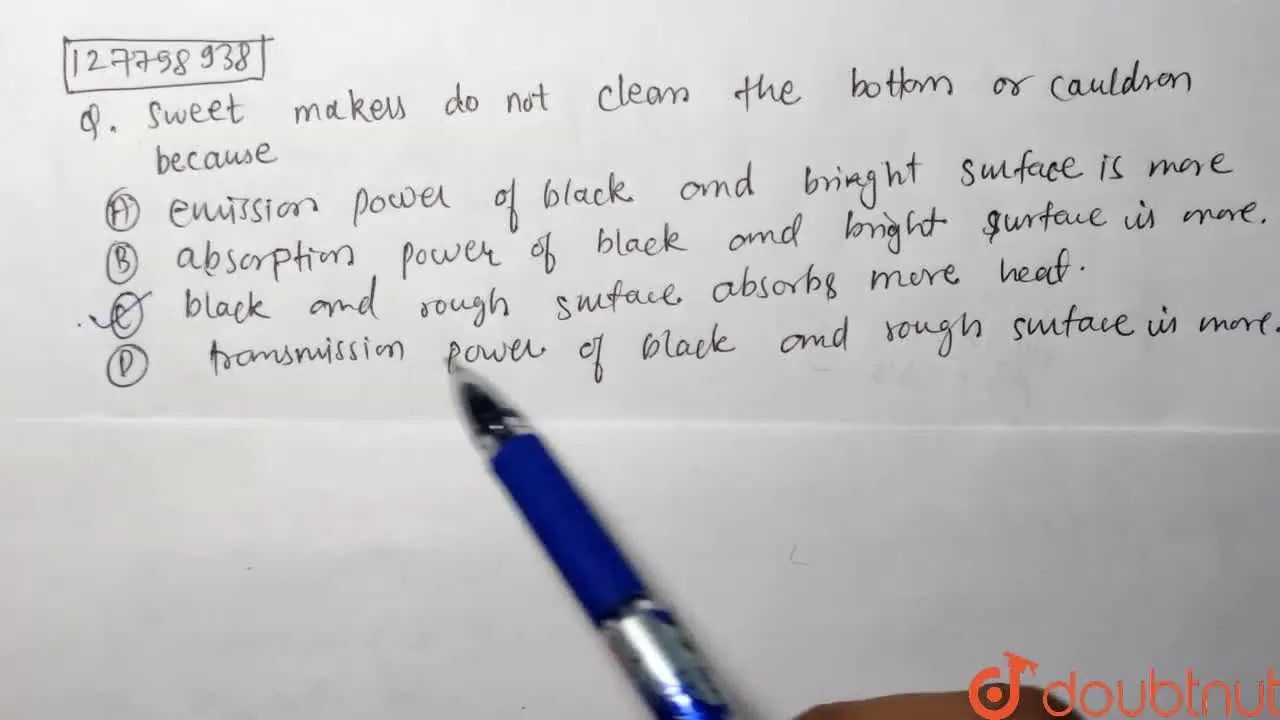 127798938
Q. Sweet makers do not clean the bottom or cauldron
because
(A) emission power of black and bright surface is more
(B) absorption power of black and bright surface is more.
(C) black and rough surface absorbs more heat.
(D) transmission power of black and rough surface is more.
doubtnut